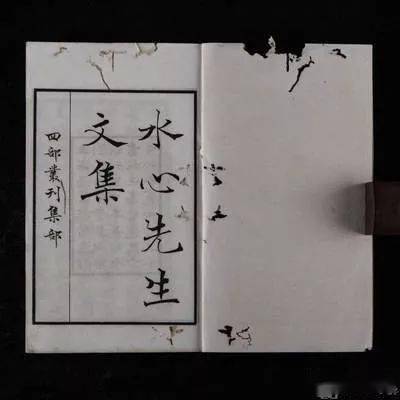 水心先生
文集
四部叢刊集部